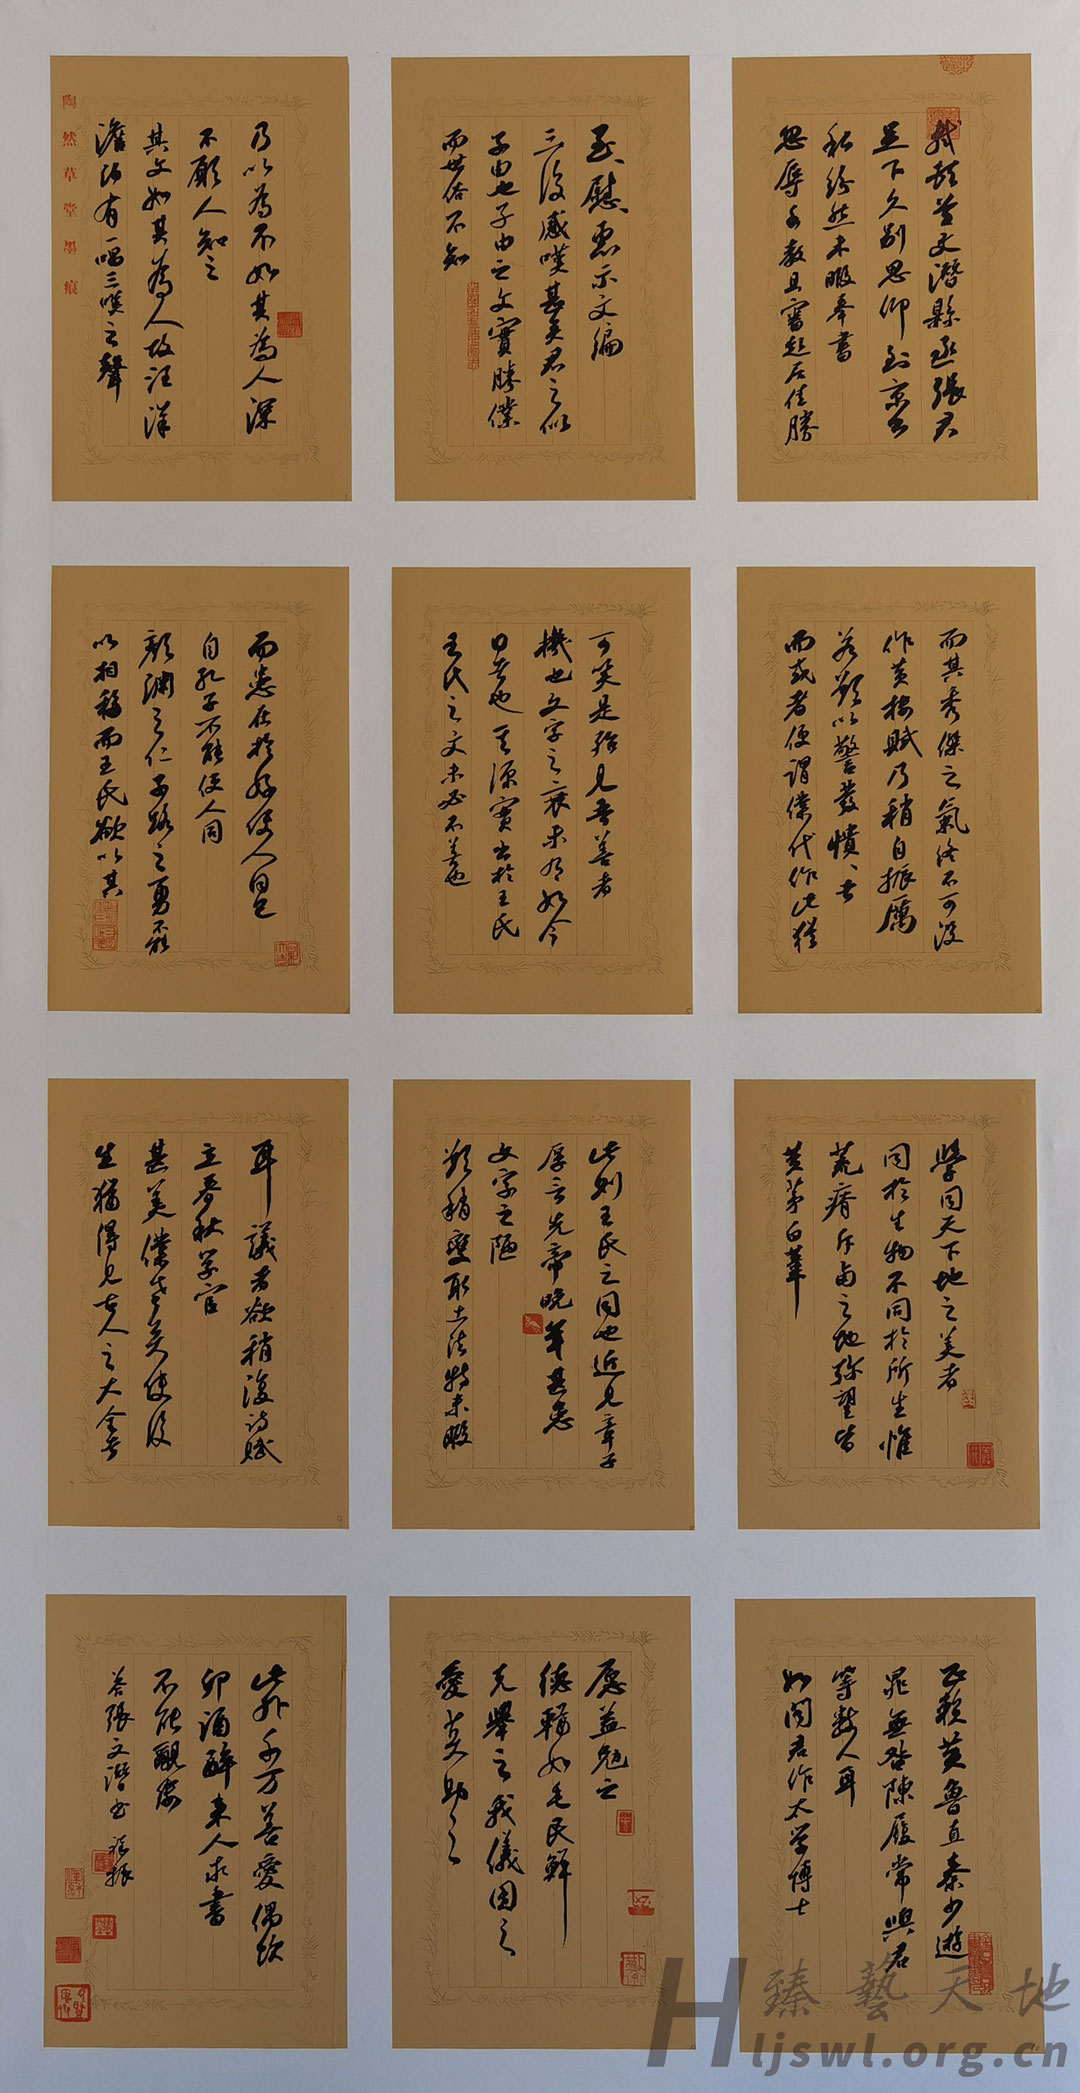 軾頓首文潛縣丞張君
足下久別思仰到京公
私紛然未暇奉書
忽辱手教且審起居佳勝
至、慰、惠示文編
三復感嘆甚矣君之似
子由也子由之文實勝僕
而世俗不知
乃以為不如其為人深
不願人知之
其文如其為人故汪洋
澹泊有一唱三嘆之聲
陶然草堂墨痕
而其秀傑之氣終不可沒
作黃樓賦乃稍自振厲
若欲以警發憒、者
而或者便謂僕代作此猶
可笑是殆見吾善者
機也文字之衰未有如今
日者也其源實出於王氏
王氏之文未必不善也
而患在於好使人同己
自孔子不能使人同
顏淵之仁子路之勇不能
以相移而王氏欲以其
學同天下地之美者
同於生物不同於所生惟
荒瘠斥鹵之地弥望皆
黃茅白葦
此則王氏之同也近見章子
厚言先帝晚年甚患
文字之陋
欲稍變取士法特未暇
耳議者欲稍復詩賦
立春秋學官
甚美僕老矣使後
生猶得見古人之大全者
正賴黃魯直秦少遊
晁無咎陳履常與君
等數人耳
如聞君作太學博士
愿益勉之
德輶如毛民鮮
克舉之我儀圖之
愛莫助之
此外千万善愛偶飲
卯酒醉來人求書
不能覼縷
答張文潛書
臻藝天地
Hljswl.org.cn